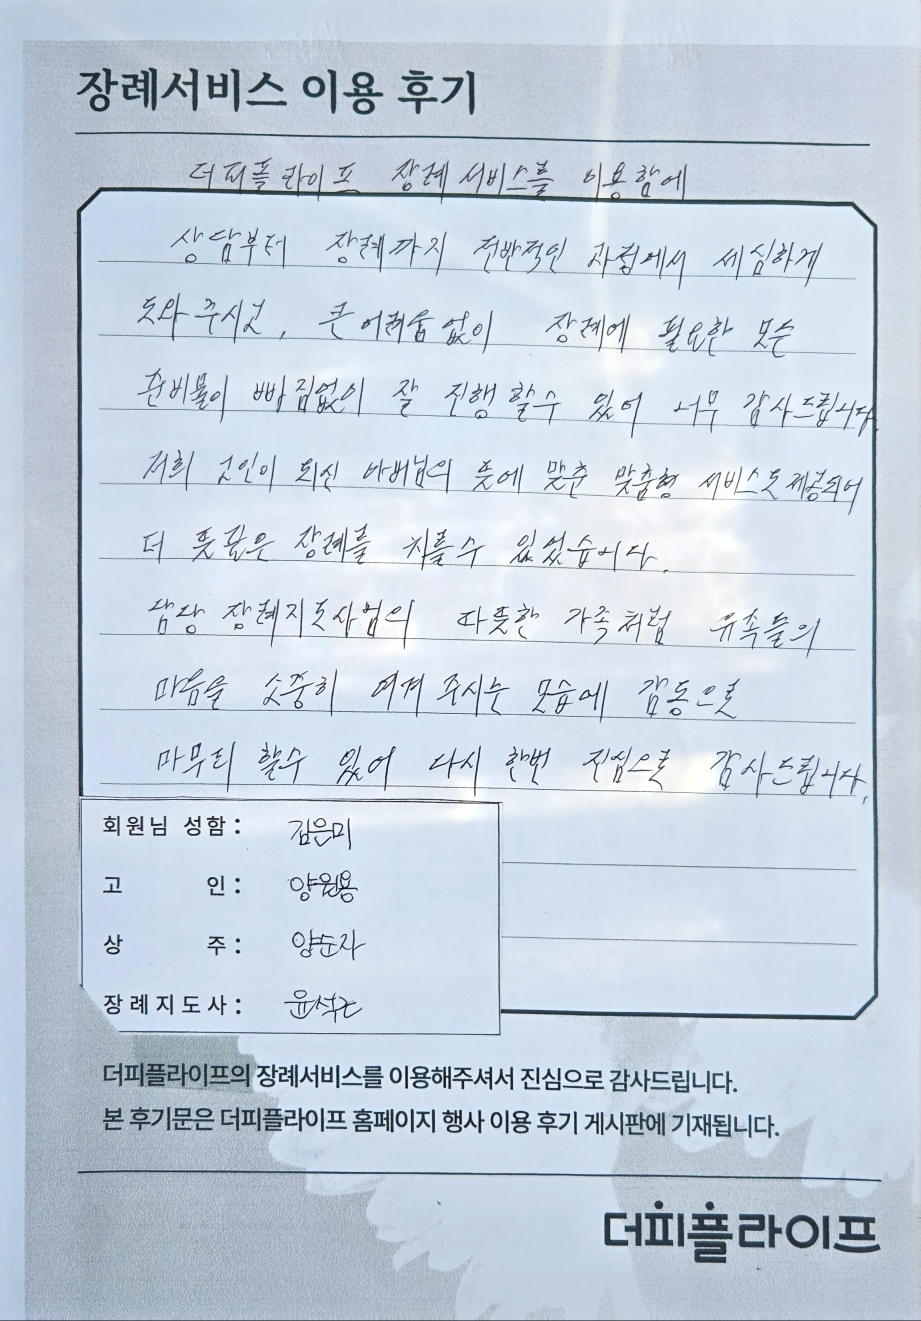 장례서비스 이용 후기
더피플라이프 장례 서비스를 이용함에
상담부터 장례까지 전반적인 과정에서 세심하게
도와 주시고, 큰 어려움 없이 장례에 필요한 모든
준비물이 빠짐없이 잘 진행 할수 있어 너무 감사드립니다.
저희 고인이 되신 아버님의 뜻에 맞춘 맞춤형 서비스도 제공되어
더 뜻깊은 장례를 치를수 있었습니다.
담당 장례지도사님의 따뜻한 가족처럼 유족들의
마음을 소중히 여겨 주시는 모습에 감동으로
마무리 할수 있어 다시 한번 진심으로 감사드립니다.
회원님 성함: 김은미
고 인: 양원용
상 주: 양순자
장례지도사: 윤석
더피플라이프의 장례서비스를 이용해주셔서 진심으로 감사드립니다.
본 후기문은 더피플라이프 홈페이지 행사 이용 후기 게시판에 기재됩니다.
더피플라이프